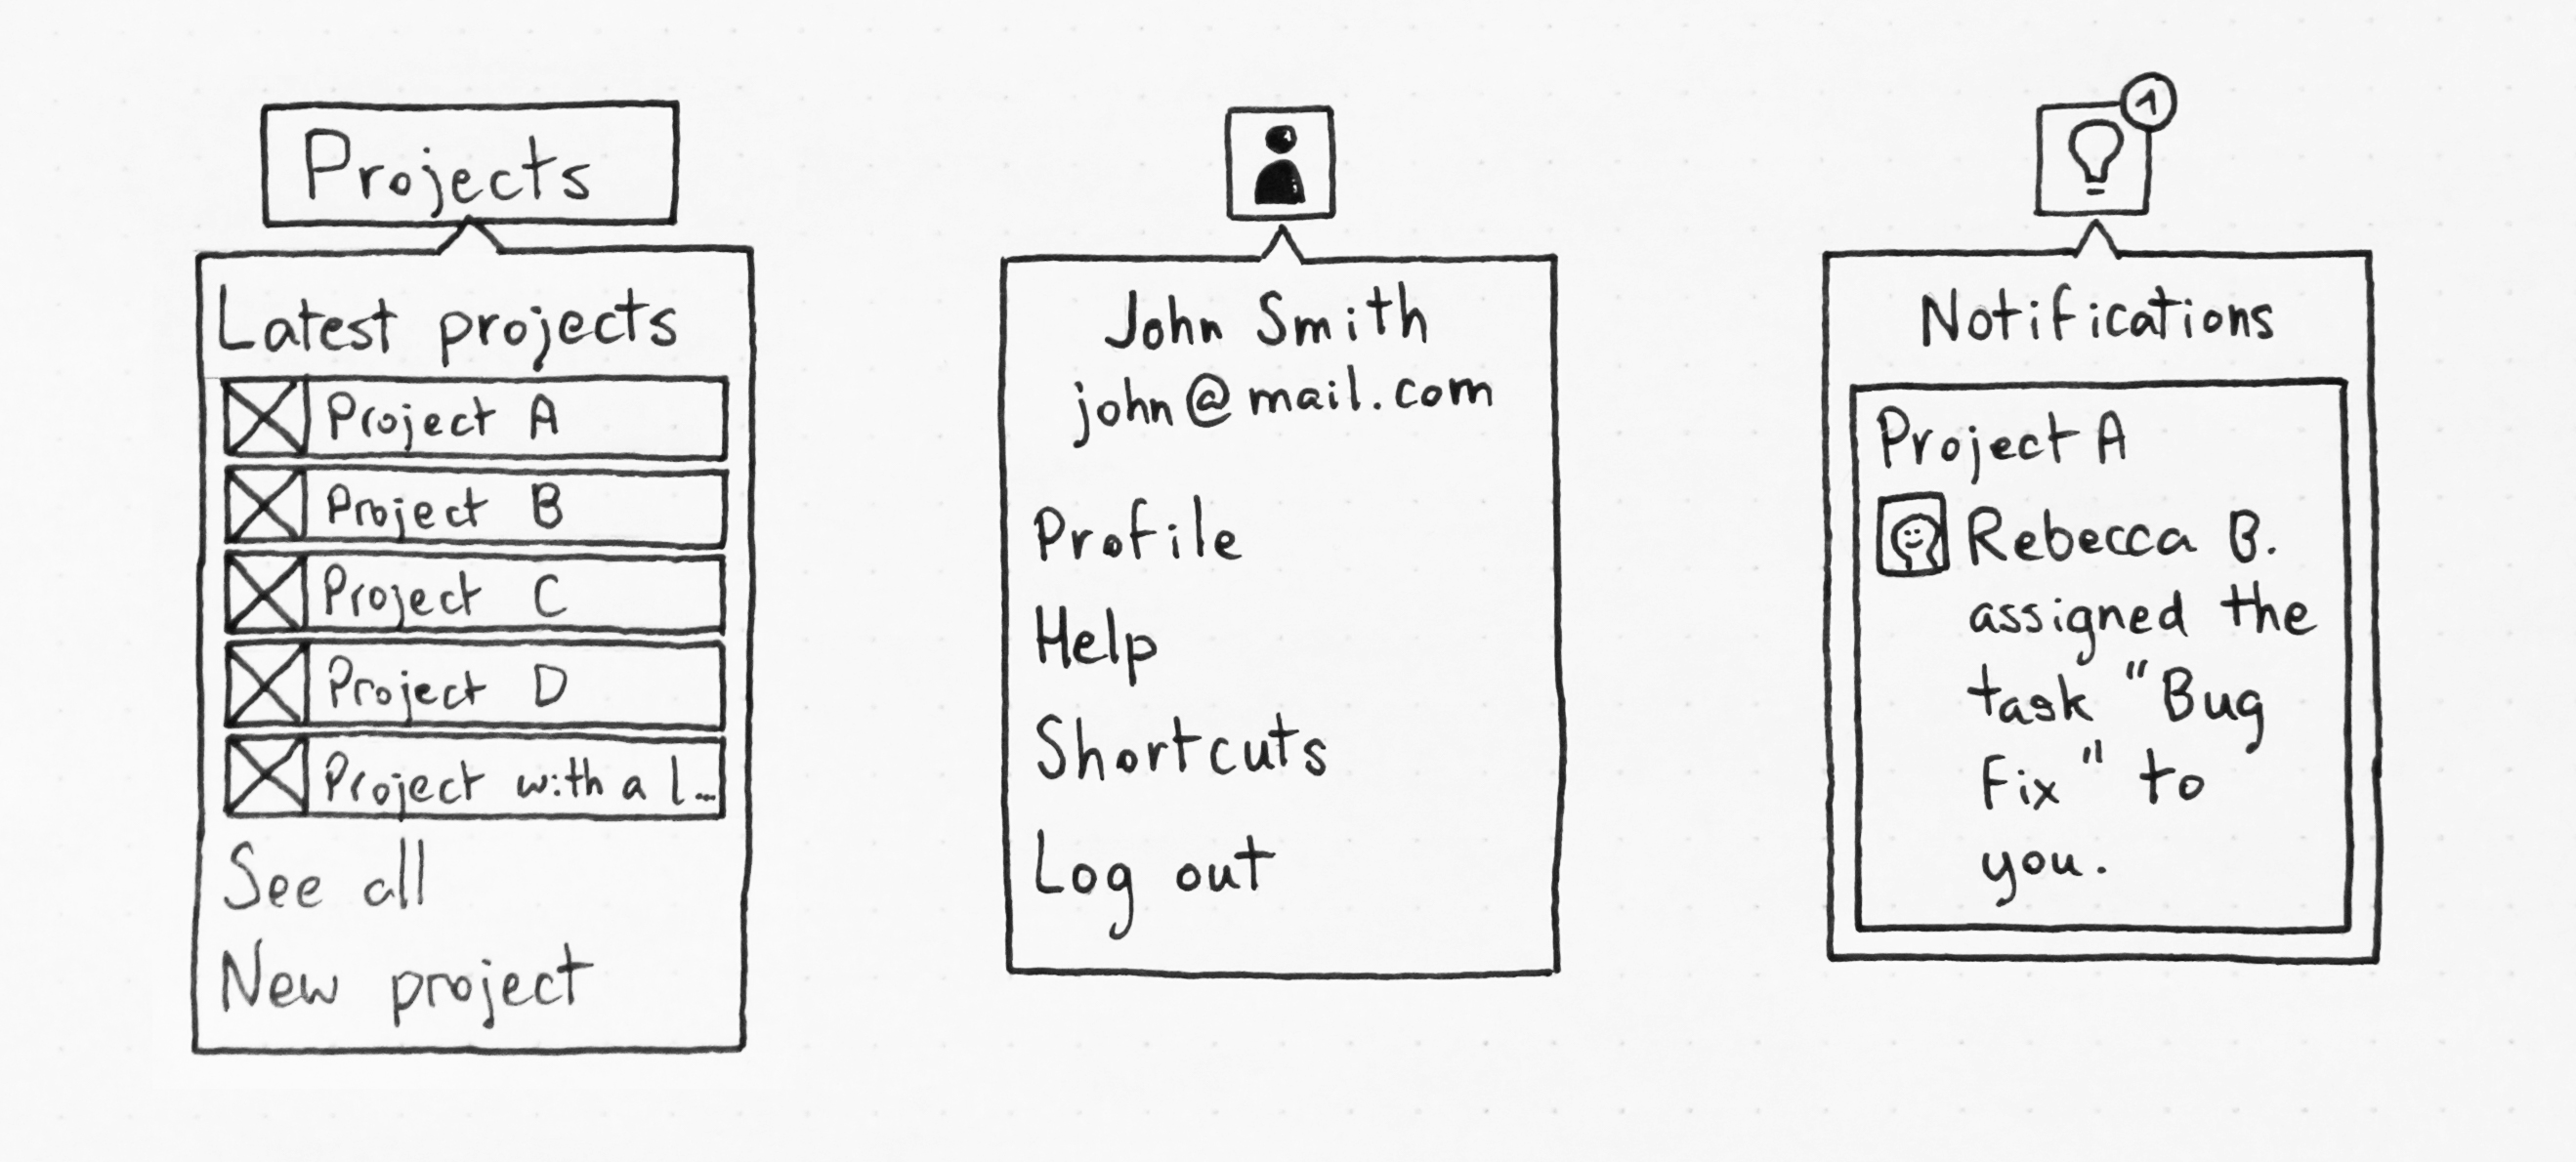 Projects
Latest projects
Project A
Project B
Project C
Project D
Project with a l...
See all
New project
John Smith
john@mail.com
Profile
Help
Shortcuts
Log out
1
Notifications
Project A
Rebecca B.
assigned the
task "Bug
Fix" to
you.